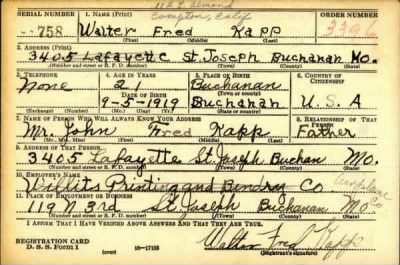 1121 Almond
Compton, Calif
SERIAL NUMBER 1. NAME (Print) ORDER NUMBER
758 Walter Fred Kapp 3396
(First) (Middle) (Last)
2. ADDRESS (Print)
3405 Lafayette St. Joseph Buchanan Mo.
(Number and street or R. F. D. number) (Town) (County) (State)
3. TELEPHONE 4. AGE IN YEARS 5. PLACE OF BIRTH 6. COUNTRY OF CITIZENSHIP
None 2 Buchanan
DATE OF BIRTH
9-5-1919 Buchanan U.S.A
(Mo.) (Day) (Yr.) (State or country)
7. NAME OF PERSON WHO WILL ALWAYS KNOW YOUR ADDRESS 8. RELATIONSHIP OF THAT PERSON
Mr. John Fred Kapp Father
(Mr., Mrs., Miss) (First) (Middle) (Last)
9. ADDRESS OF THAT PERSON
3405 Lafayette St. Joseph Buchan Mo.
(Number and street or R. F. D. number) (Town) (County) (State)
10. EMPLOYER'S NAME
Willits Printing and Bindry Co
11. PLACE OF EMPLOYMENT OR BUSINESS
119 N 3rd St. Joseph Buchanan Mo
(Number and street or R. F. D. number) (Town) (County) (State)
I AFFIRM THAT I HAVE VERIFIED ABOVE ANSWERS AND THAT THEY ARE TRUE.
REGISTRATION CARD
D. S. S. Form 1 16-17105 Walter Fred Kapp
(Registrant's signature)